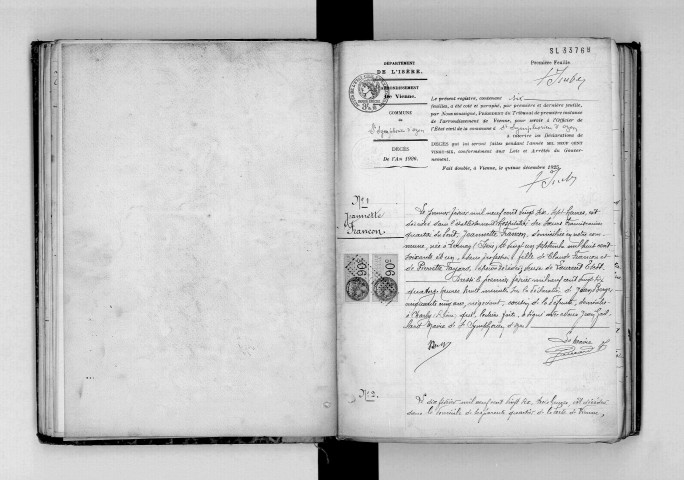 SL 33768
DÉPARTEMENT
DE L'ISÈRE.
ARRONDISSEMENT
de Vienne.
COMMUNE
de
St Symphorien d'Ozon
DÉCÈS
De l'An 1926.
Première Feuille
Le présent registre, contenant six
feuilles, a été coté et paraphé, par première et dernière feuille,
par Nous soussigné, Président du Tribunal de première instance
de l'arrondissement de Vienne, pour servir à l'Officier de
l'État civil de la commune d St Symphorien d'Ozon
à inscrire les Déclarations de
DÉCÈS qui lui seront faites pendant l'année MIL NEUF CENT
VINGT-SIX, conformément aux Lois et Arrêtés du Gouver-
nement.
Fait double, à Vienne, le quinze décembre 1925.
No 1
Jeannette
Françon
Le premier février mil neuf cent vingt six, sept heures, est
décédée dans l'établissement hospitalier des Sœurs
quartier du Pont, Jeannette Françon, domiciliée en notre com-
mune, née à (Isère), le vingt un septembre mil huit cent
soixante et un, sans profession, fille de Claude Françon et
de Pierrette veuve de Laurent
Dressé le premier février mil neuf cent vingt six
quatorze heures trente minutes sur la déclaration de Jean
cinquante cinq ans, négociant, cousin de la défunte, domicilié
à Charly (Rhône) qui, lecture faite, a signé avec nous Jean
Maire de St Symphorien d'Ozon
Le Maire
No 2.
Le dix février mil neuf cent vingt six, trois heures, est décédée
dans le domicile de quartier de la route de Vienne,